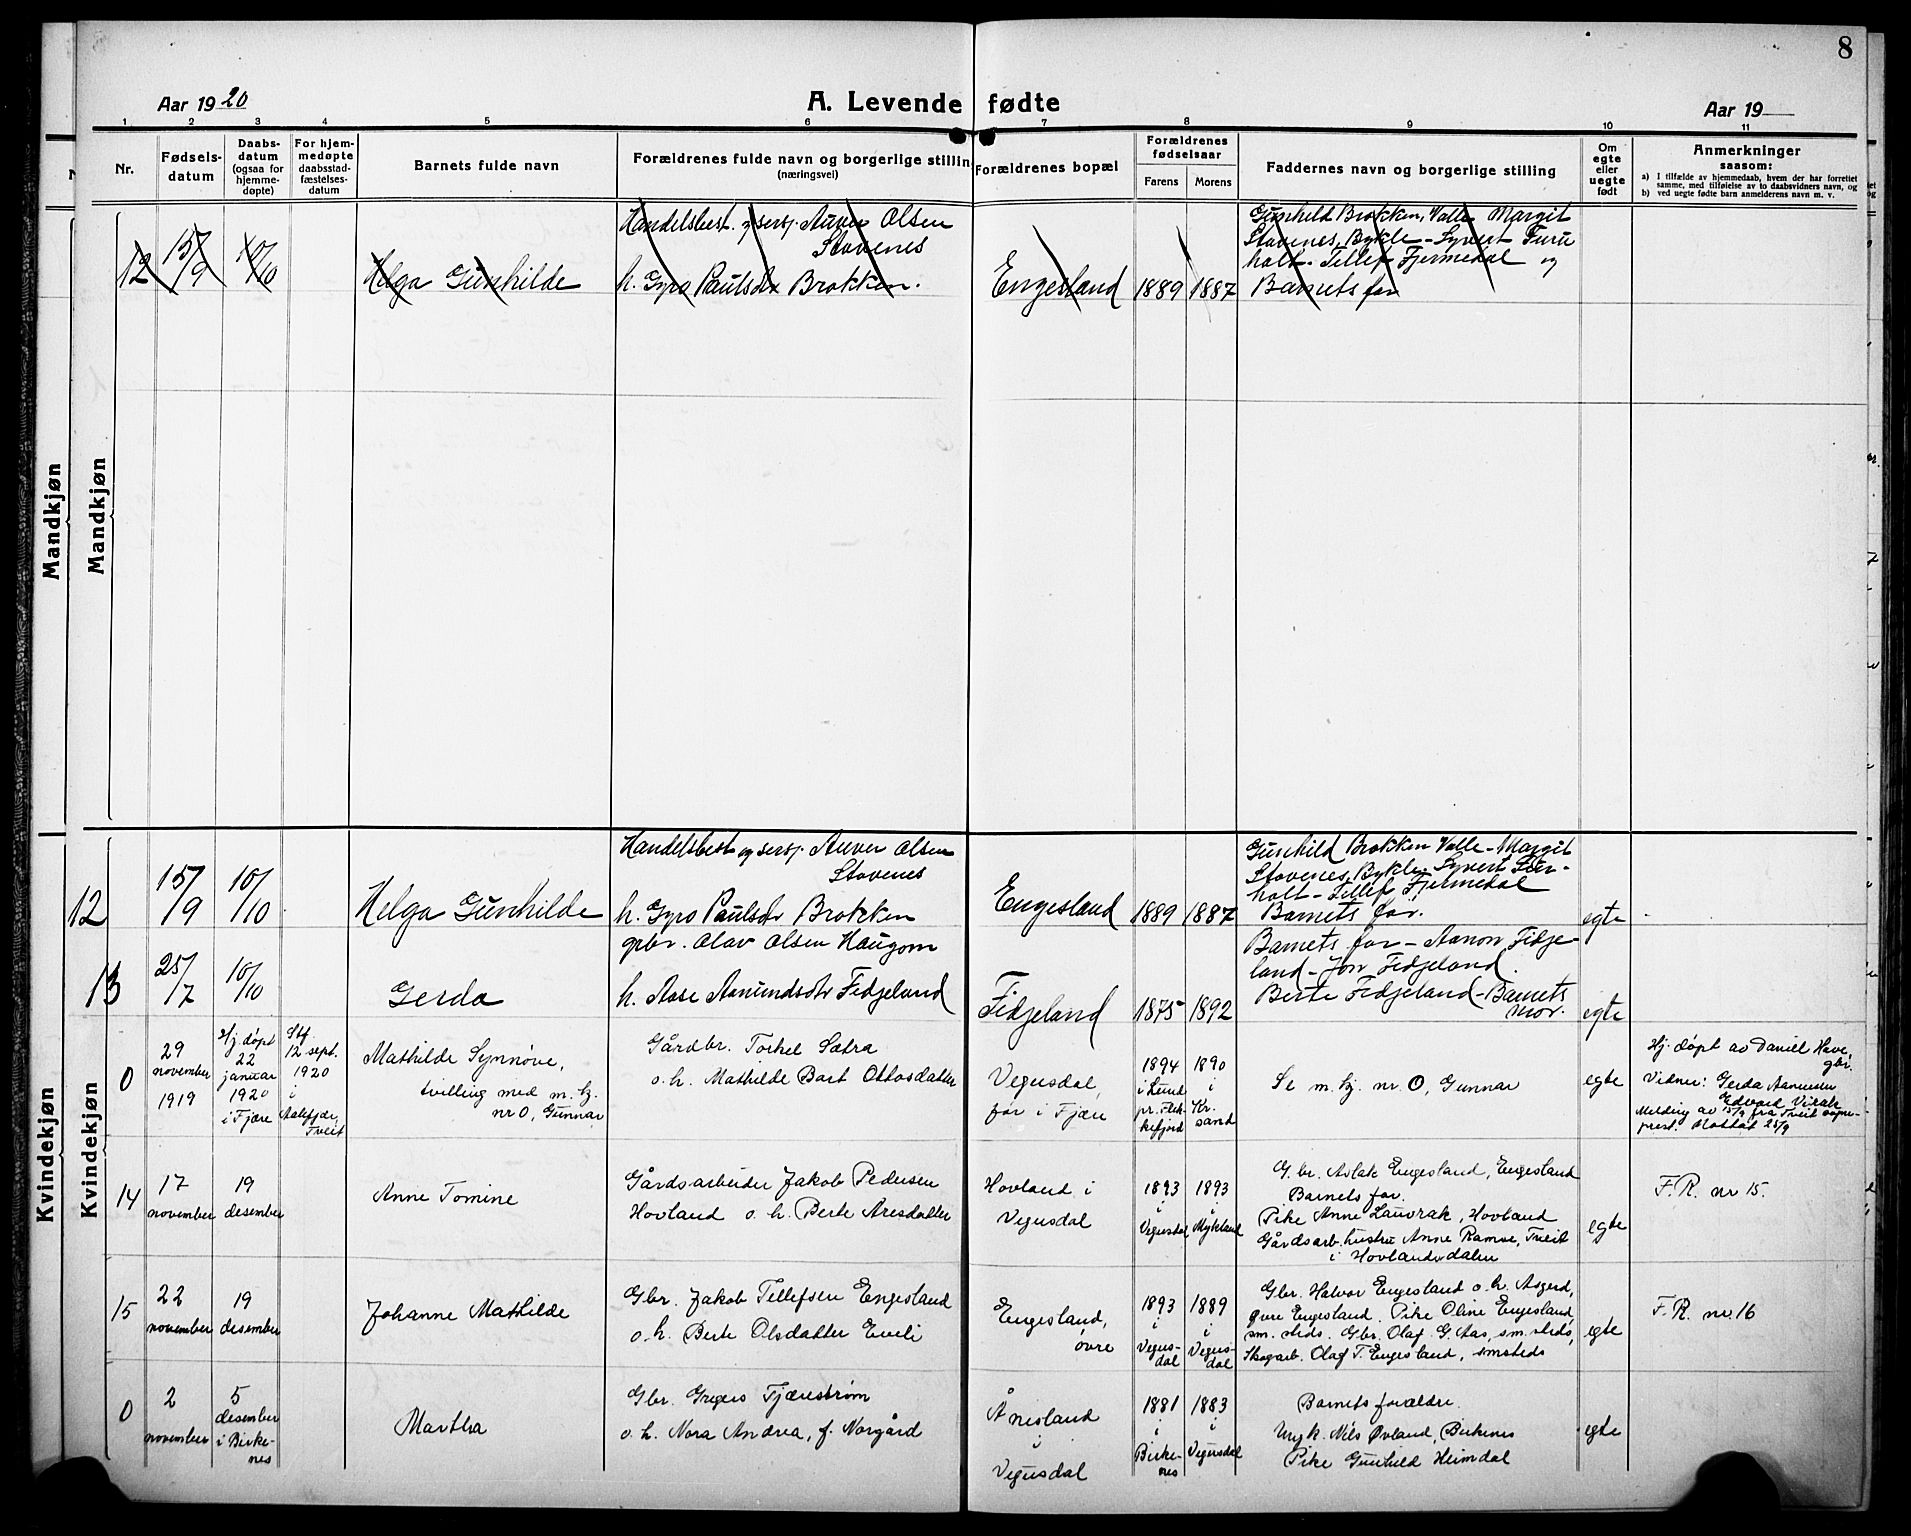 8
Aar 1920
A. Levende fødte
Aar 19
1 2 3 4 5 6 7 8 9 10 11
Nr.
Fødsels-
datum
Daabs-
datum
(ogsaa for
hjemme-
døpte)
For hjem-
medøpte
daabsstad-
fæstelses-
datum
Barnets fulde navn
Forældrenes fulde navn og borgerlige stilling
(næringsvei)
Forældrenes bopæl
Forældrenes
fødselsaar
Farens
Morens
Faddernes navn og borgerlige stilling
Om
egte
eller
uegte
født
Anmerkninger
saasom:
a) I tilfælde av hjemmedaab, hvem der har forrettet
samme, med tilføielse av to daabsvidners navn, og
b) ved uegte fødte barn anmelderens navn m. v.
Mandkjøn
Mandkjøn
12
15/9
10/10
Helga Gunhilde
Handelsbest. og sersj. Auver Olsen
Stavenes
h. Gyro Paulsdr Brokken.
Engesland
1889
1887
Gunhild Brokken, Valle Margit
Stavenes, Bykle - Syvert Furu
holt - Tellef Fjermedal og
Barnets far
Kvindekjøn
Kvindekjøn
12
15/9
10/10
Helga Gunhilde
Handelsbest og sersj. Auver Olsen
Stavenes
h. Gyro Paulsdr Brokken
Engesland
1889
1887
Gunhild Brokken Valle - Margit
Stavenes, Bykle - Syvert Fur-
holt - Tellef Fjermedal
Barnets far.
egte
13
25/7
10/10
Gerda
grbr. Olav Olsen Haugom
h. Aase Aanundsdtr Fidjeland
Fidjeland
1875
1892
Barnets far - Aanon Fidje-
land - Jon Fidjeland.
Berte Fidjeland - Barnets
mor.
egte
0
29
november
1919
Hj. døpt
22
januar
1920
i Fjære
Stf.
12 sept.
1920
i
Aalefjær,
Tveit
Mathilde Synnøve,
tvilling med m. kj.
nr 0, Gunnar
Gårdbr. Torkel Sætra
o. h. Mathilde Bart Ottosdatter
Vegusdal,
før i Fjære
1894
i Lund
pr. Flek-
kefjord
1890
i
Kr.
sand
Se m. kj. nr. 0, Gunnar
egte
Hj. døpt av Daniel Have,
gbr.
Vidner: Gerda Aanensen
Edvard
Melding av 15/9 fra Tveit sogne-
prest. Mottat 25/9
14
17
november
19
desember
Anne Tomine
Gårdsarbeider Jakob Pedersen
Hovland o. h. Berte Aresdatter
Hovland i
Vegusdal
1893
i
Vegusdal
1893
i
Mykland
G. br. Aslak Engesland, Engesland
Barnets far.
Pike Anne Lauvrak, Hovland
Gårdsarb. hustru Anne Ramse, Tveit
i Hovlandsdalen
egte
F. R. nr 15.
15
22
november
19
desember
Johanne Mathilde
Gbr. Jakob Tellefsen Engesland
o. h. Berte Olsdatter Eveli
Engesland,
øvre
1893
i
Vegus-
dal
1889
i
Vegus-
dal
Gbr. Halvor Engesland o. h. Asgerd,
øvre Engesland. Pike Oline Engesland,
sm. steds. Gbr. Olaf G. Aas, sm. steds,
Skogarb. Olaf T. Engesland, smsteds
egte
F. R. nr. 16
0
2
november
5
desember
i Birke-
nes
Martha
Gbr. Gregers Tjærestrøm
o. h. Nora Andrea, f. Norgård
Ånesland
i
Vegusdal
1881
i
Birke-
nes
1883
i
Vegusdal
Barnets forældre.
Ungk. Nils Øvland, Birkenes
Pike Gunhild Heimdal
egte